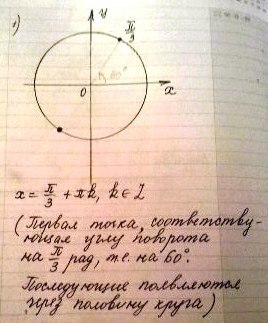 1)
y
π/3
60°
0
x
x = π/3 + πk, k ∈ Z
(Первая точка, соответству-
ющая углу поворота
на π/3 рад, т.е. на 60°.
Последующие появляются
через половину круга)